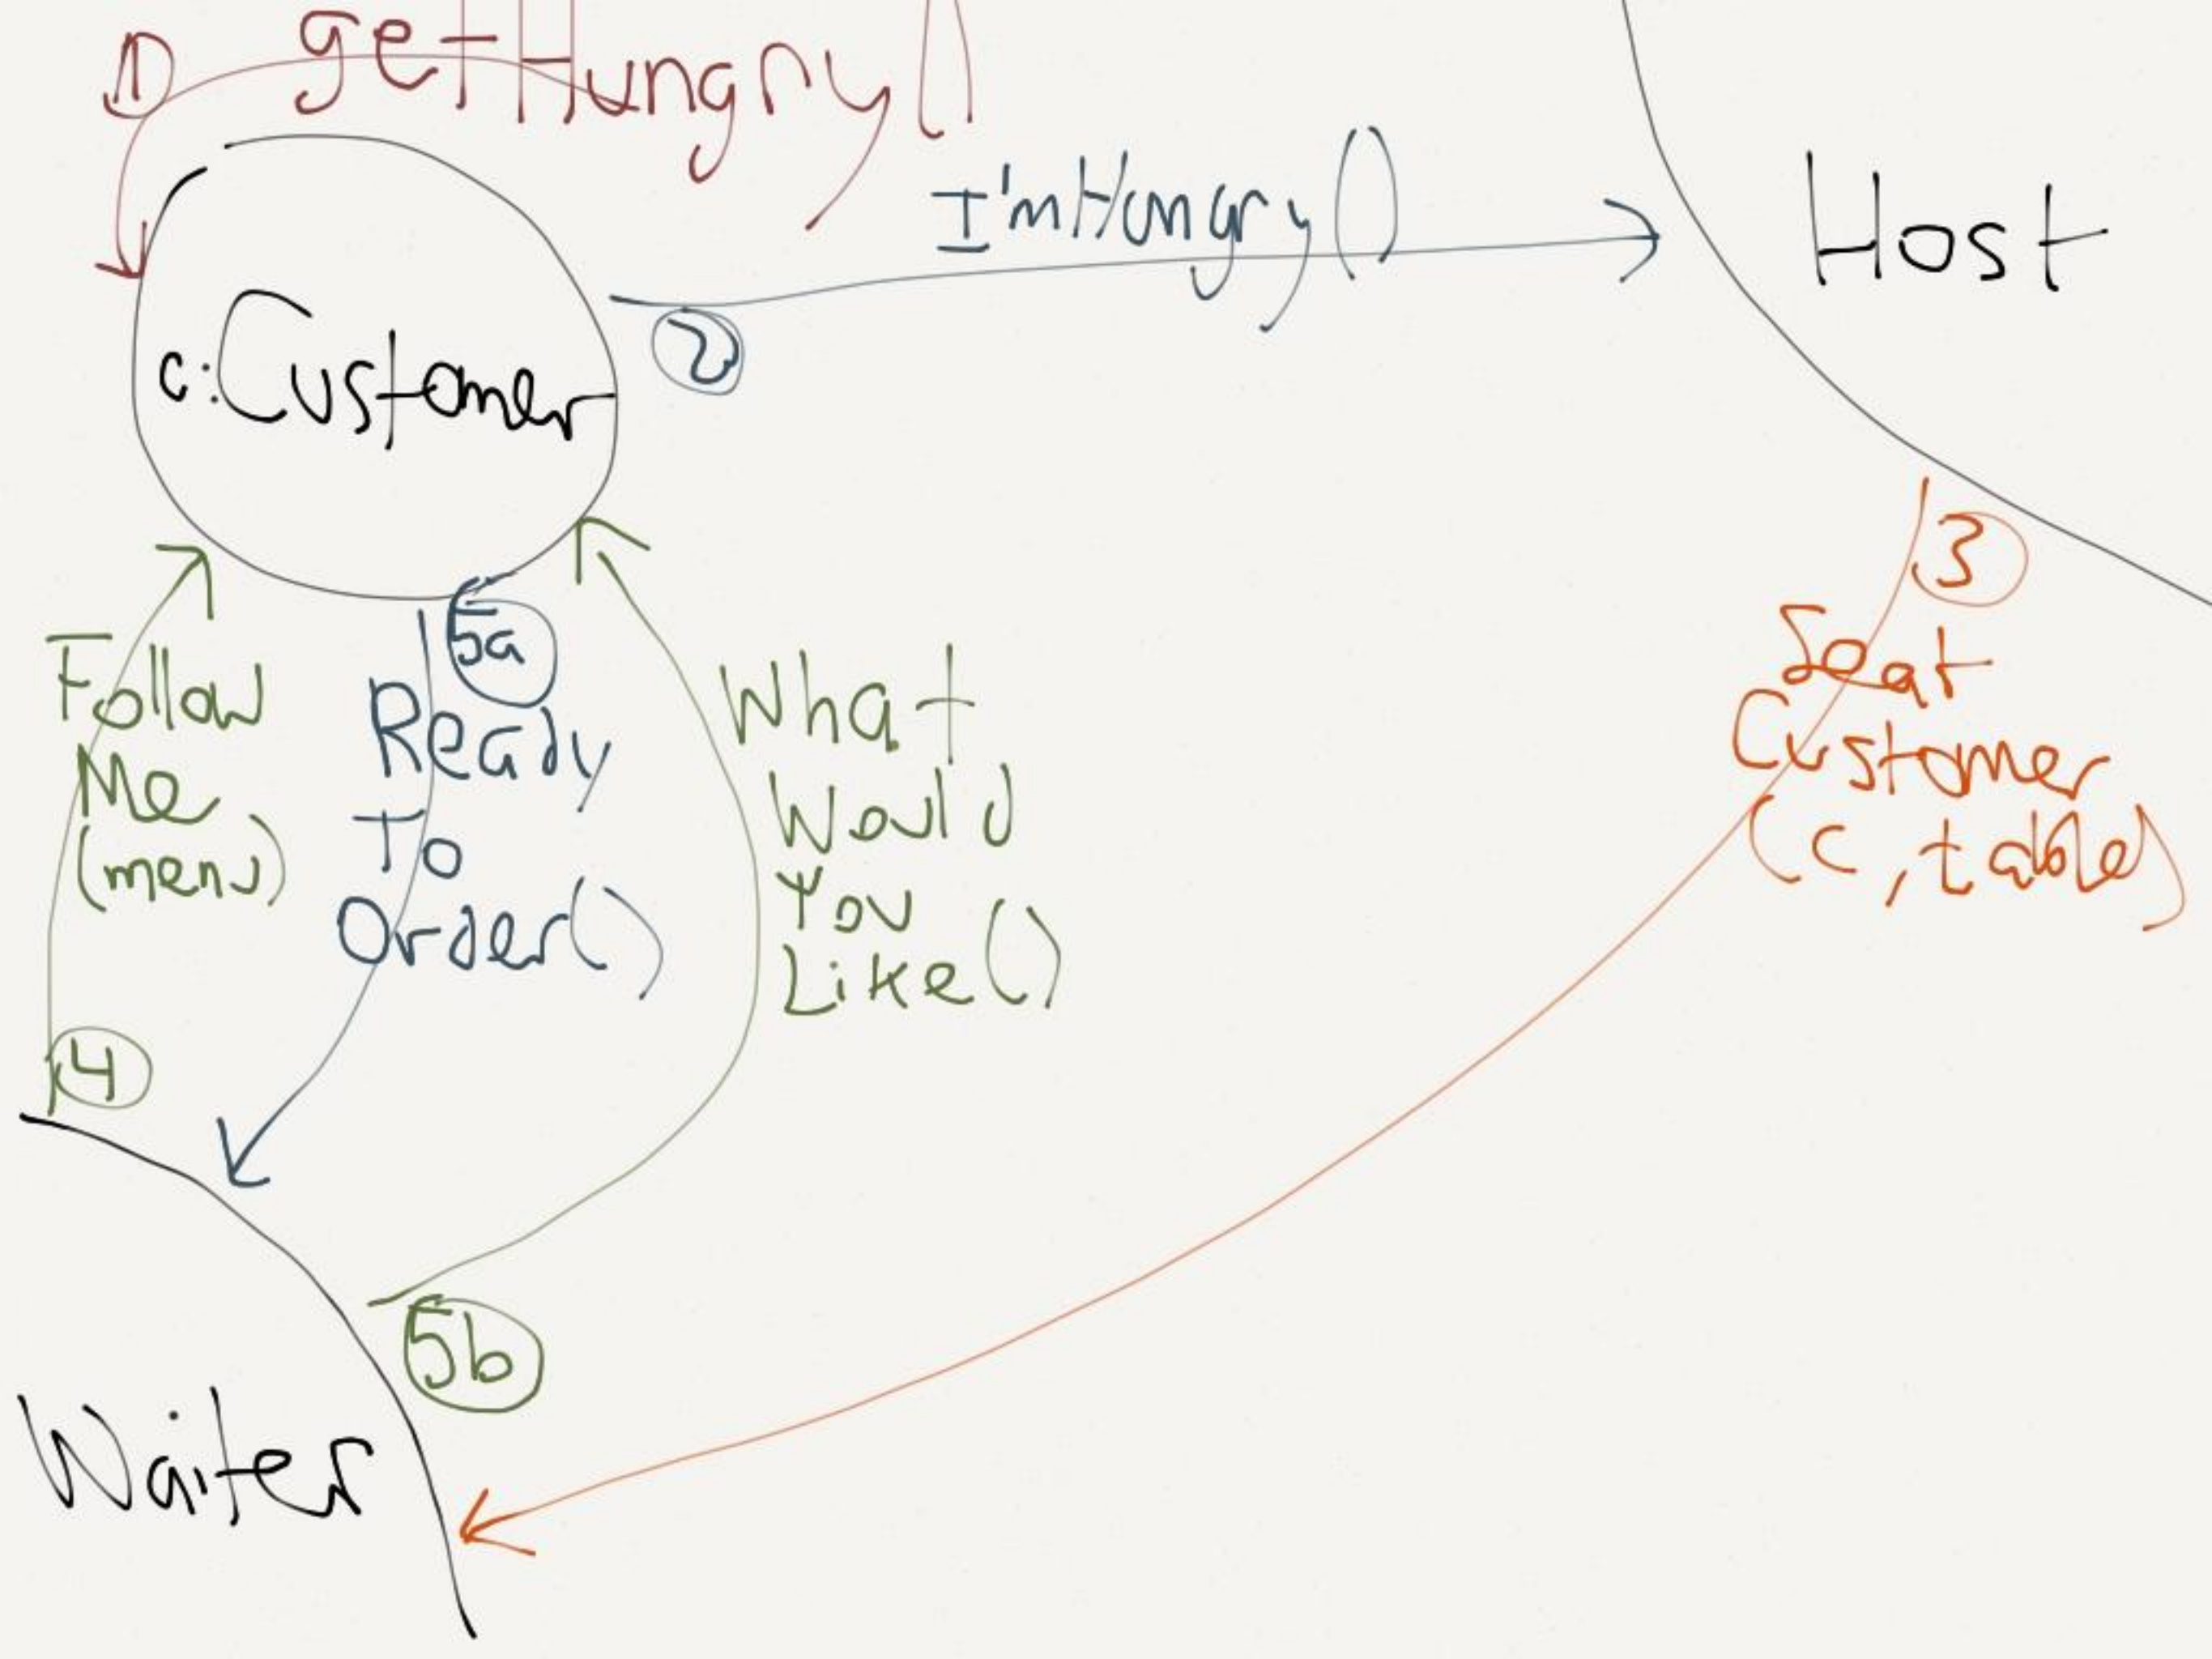 1 getHungry()
I'mHungry()
Host
2
c:Customer
3
Seat
Customer
(c, table)
5a
Follow
Me
(menu)
Ready
To
Order()
What
Would
You
Like()
4
5b
Waiter